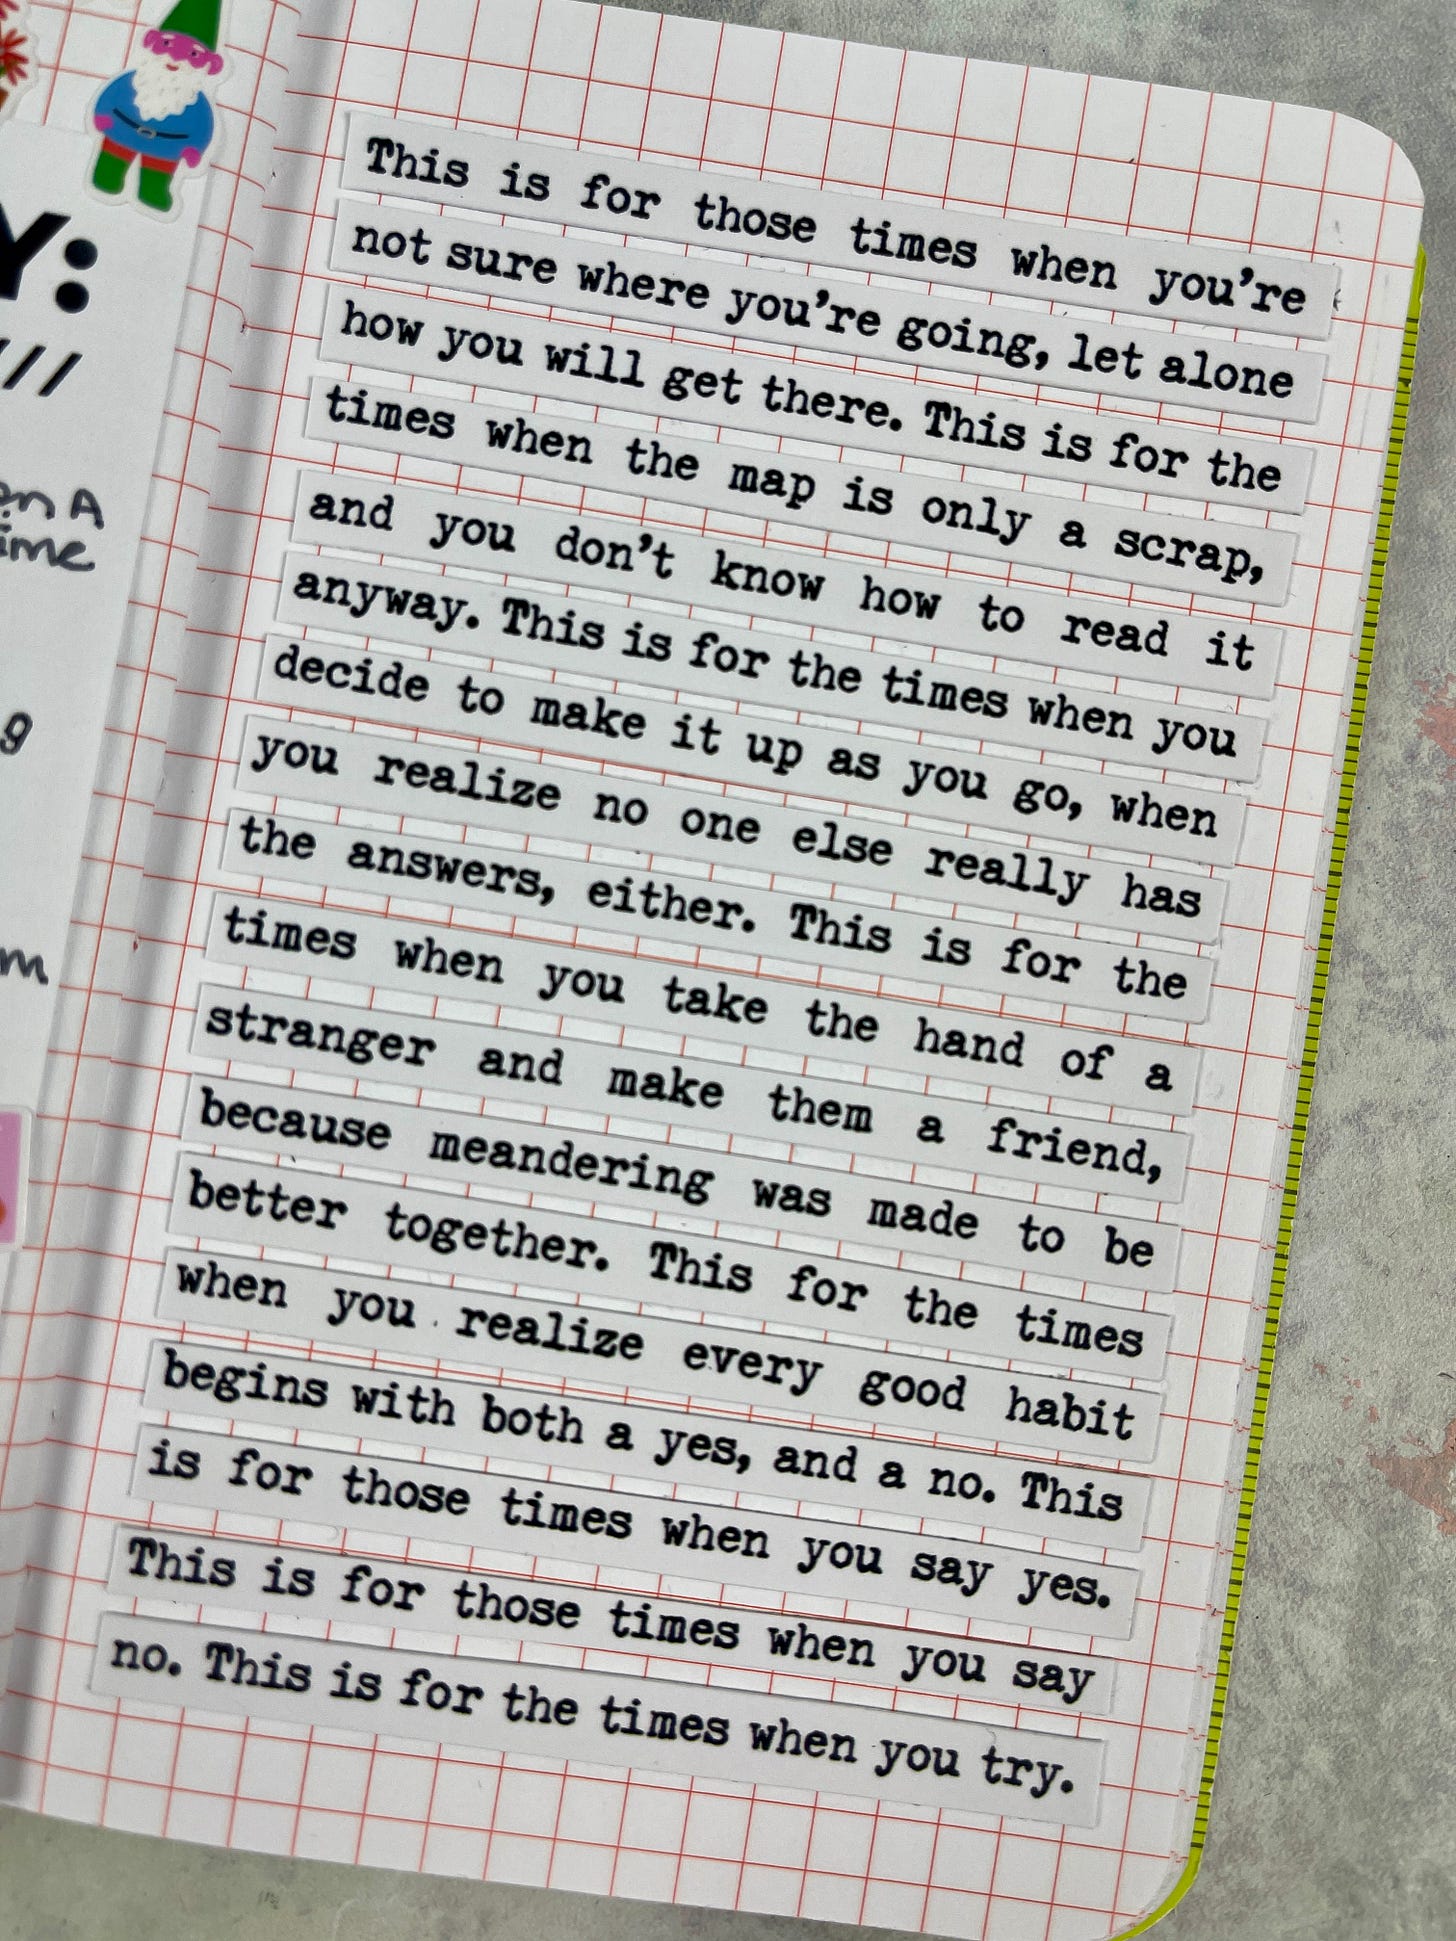 Y:
///
on A
ime
g
m
This is for those times when you're
not sure where you're going, let alone
how you will get there. This is for the
times when the map is only a scrap,
and you don't know how to read it
anyway. This is for the times when you
decide to make it up as you go, when
you realize no one else really has
the answers, either. This is for the
times when you take the hand of a
stranger and make them a friend,
because meandering was made to be
better together. This for the times
when you realize every good habit
begins with both a yes, and a no. This
is for those times when you say yes.
This is for those times when you say
no. This is for the times when you try.